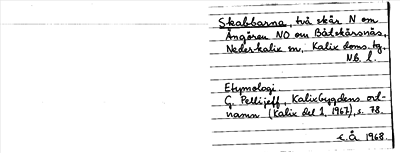 Skabbarna, två skär N om
Ångören NO om Båtskärsnäs,
Nederkalix sn, Kalix doms. tg,
Nb. l.
Etymologi.
G. Pellijeff, Kalixbygdens ort-
namn (Kalix del 2, 1967), s. 78.
E. Å 1968.